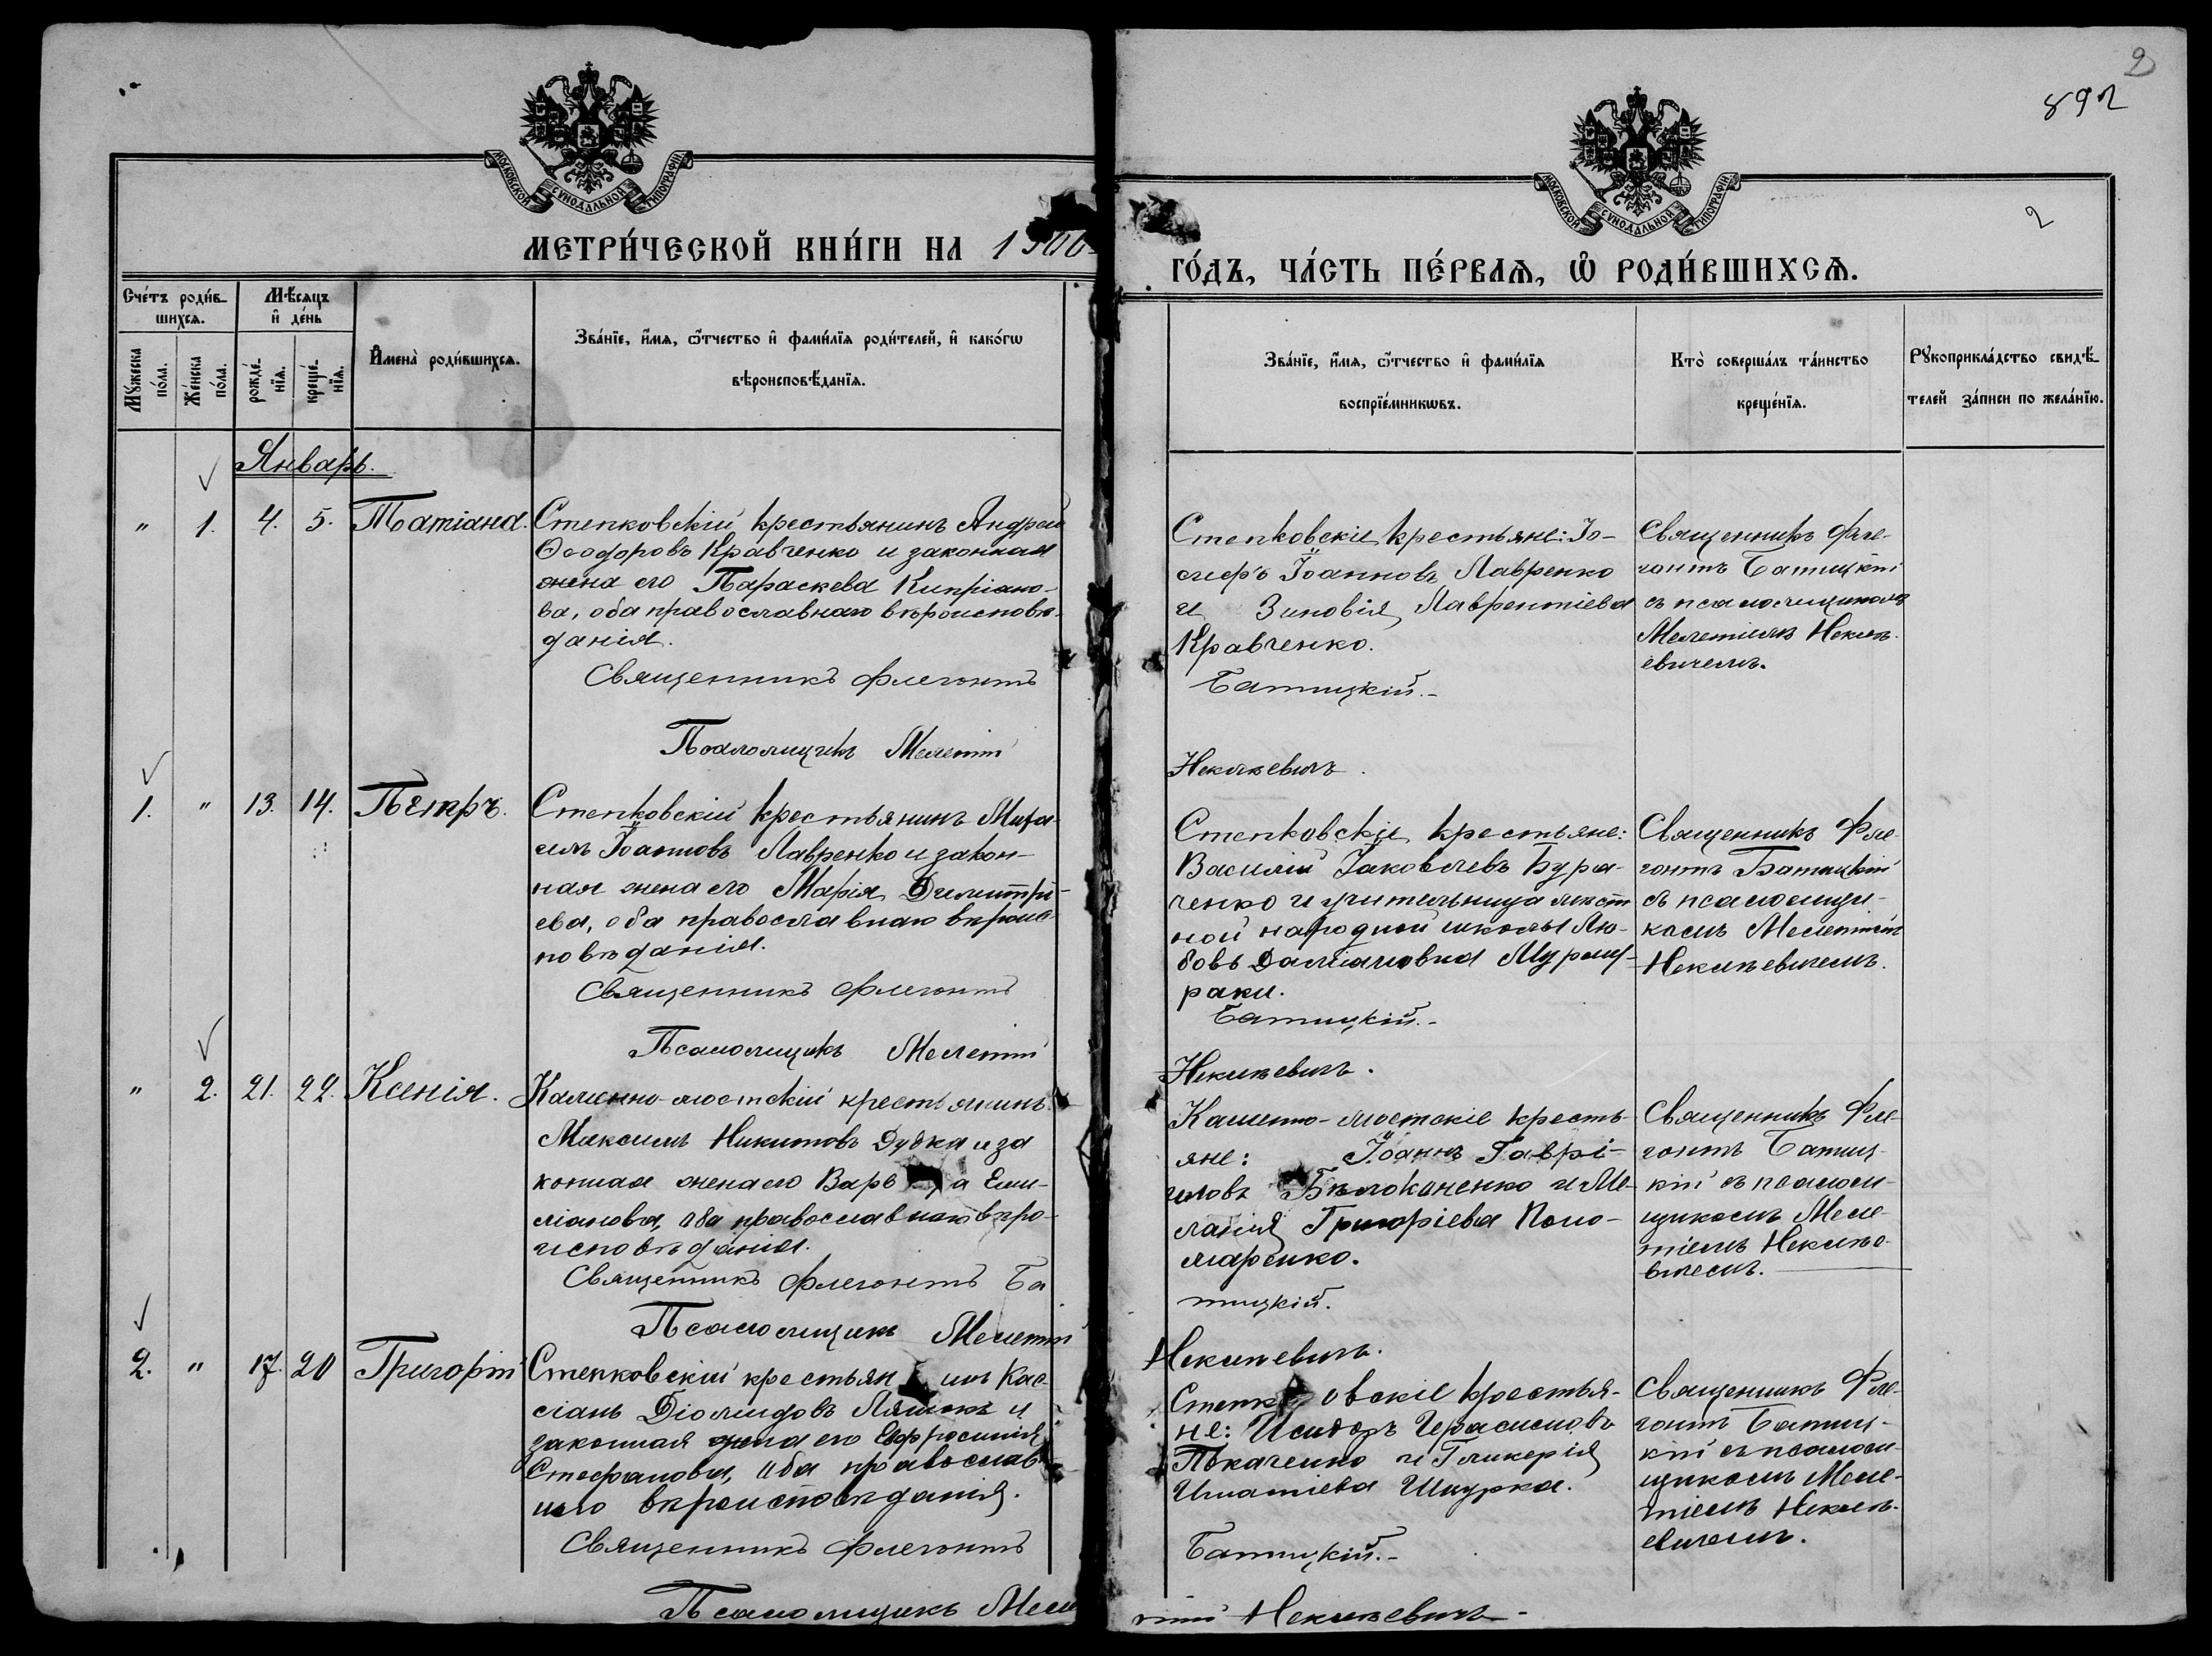 2
892
МОСКОВСКОЙ СУНОДАЛЬНОЙ ТИПОГРАФІИ
МОСКОВСКОЙ СУНОДАЛЬНОЙ ТИПОГРАФІИ
2
МЕТРИ́ЧЕСКОЙ КНИ́ГИ НА 1900
ГО́ДЪ, ЧА́СТЬ ПЕ́РВАѦ, Ѡ РОДИ́ВШИХСѦ.
Сче́тъ роди́в-
шихсѧ.
Мꙋжеска по́ла.
Же́нска по́ла.
Мѣ́сѧцъ
и҆ де́нь
рожде́-
нїѧ.
креще́-
нїѧ.
И҆мена̀ роди́вшихсѧ.
Зва́нїе, и҆́мѧ, ѻ҆́тчество и҆ фами́лїѧ роди́телей, и҆ како́гѡ
вѣроисповѣ́данїѧ.
Зва́нїе, и҆́мѧ, ѻ҆́тчество и҆ фами́лїѧ
воспрїе́мникѡвъ.
Кто̀ соверша́лъ та́инство
креще́нїѧ.
Рꙋкоприкла́дство свидѣ́-
телей за́писи по жела́нїю.
Январь.
" 1. 4. 5. Татіана.
Степковскій крестьянинъ Андрей
Ѳеодоровъ Кравченко и законная
жена его Параскева Кипріано-
ва, оба православнаго вѣроисповѣ-
данія.
Священникъ Флегонтъ
Псаломщикъ Мелетій
Степковскіе крестьяне: Іо-
сифъ Іоанновъ Лавренко
и Зиновія Лаврентіева
Кравченко.
Батицкій.-
Священникъ Фле-
гонтъ Батицкій
съ псаломщикомъ
Мелетіемъ
евичемъ.
1. " 13. 14. Петръ.
Степковскій крестьянинъ Миха-
илъ Іоанновъ Лавренко и закон-
ная жена его Марія Димитрі-
ева, оба православнаго вѣроис-
повѣданія.
Священникъ Флегонтъ
Псаломщикъ Мелетій
Степковскіе крестьяне:
Василій Іаковлевъ Бура-
ченко и учительница мѣст-
ной народной школы Лю-
бовь Даміановна
раки.
Батицкій.-
Священникъ Фле-
гонтъ Батицкій
съ псаломщи-
комъ Мелетіемъ
" 2. 21. 22. Ксенія.
Каменно-мостскій крестьянинъ
Максимъ Никитовъ Дудка и за
конная жена его Варв а Еми-
ліанова, оба православнаго вѣро-
исповѣданія.
Священникъ Флегонтъ Ба
Псаломщикъ Мелетій
Каменно-мостскіе кресть-
яне: Іоаннъ Гаврі-
иловъ Бѣлоконенко и Ме-
ланія Григоріева Поно-
маренко.
тицкій.
Священникъ Фле-
гонтъ Батиц-
кій съ псалом-
щикомъ Меле-
тіемъ
вичемъ.
2. " 17. 20 Григорій
Степковскій крестьян инъ Кас-
сіанъ Діомидовъ Ляшокъ и
законная жена его Евфросинія
Стефанова, оба православ-
наго вѣроисповѣданія.
Священникъ Флегонтъ
Псаломщикъ Меле
Степк овскіе крестья-
не: Исидоръ Герасимовъ
Ткаченко и Гликерія
Игнатіева Шкурка.
Батицкій.-
тій
Священникъ Фле-
гонтъ Батиц-
кій съ псалом-
щикомъ Меле-
тіемъ
евичемъ.